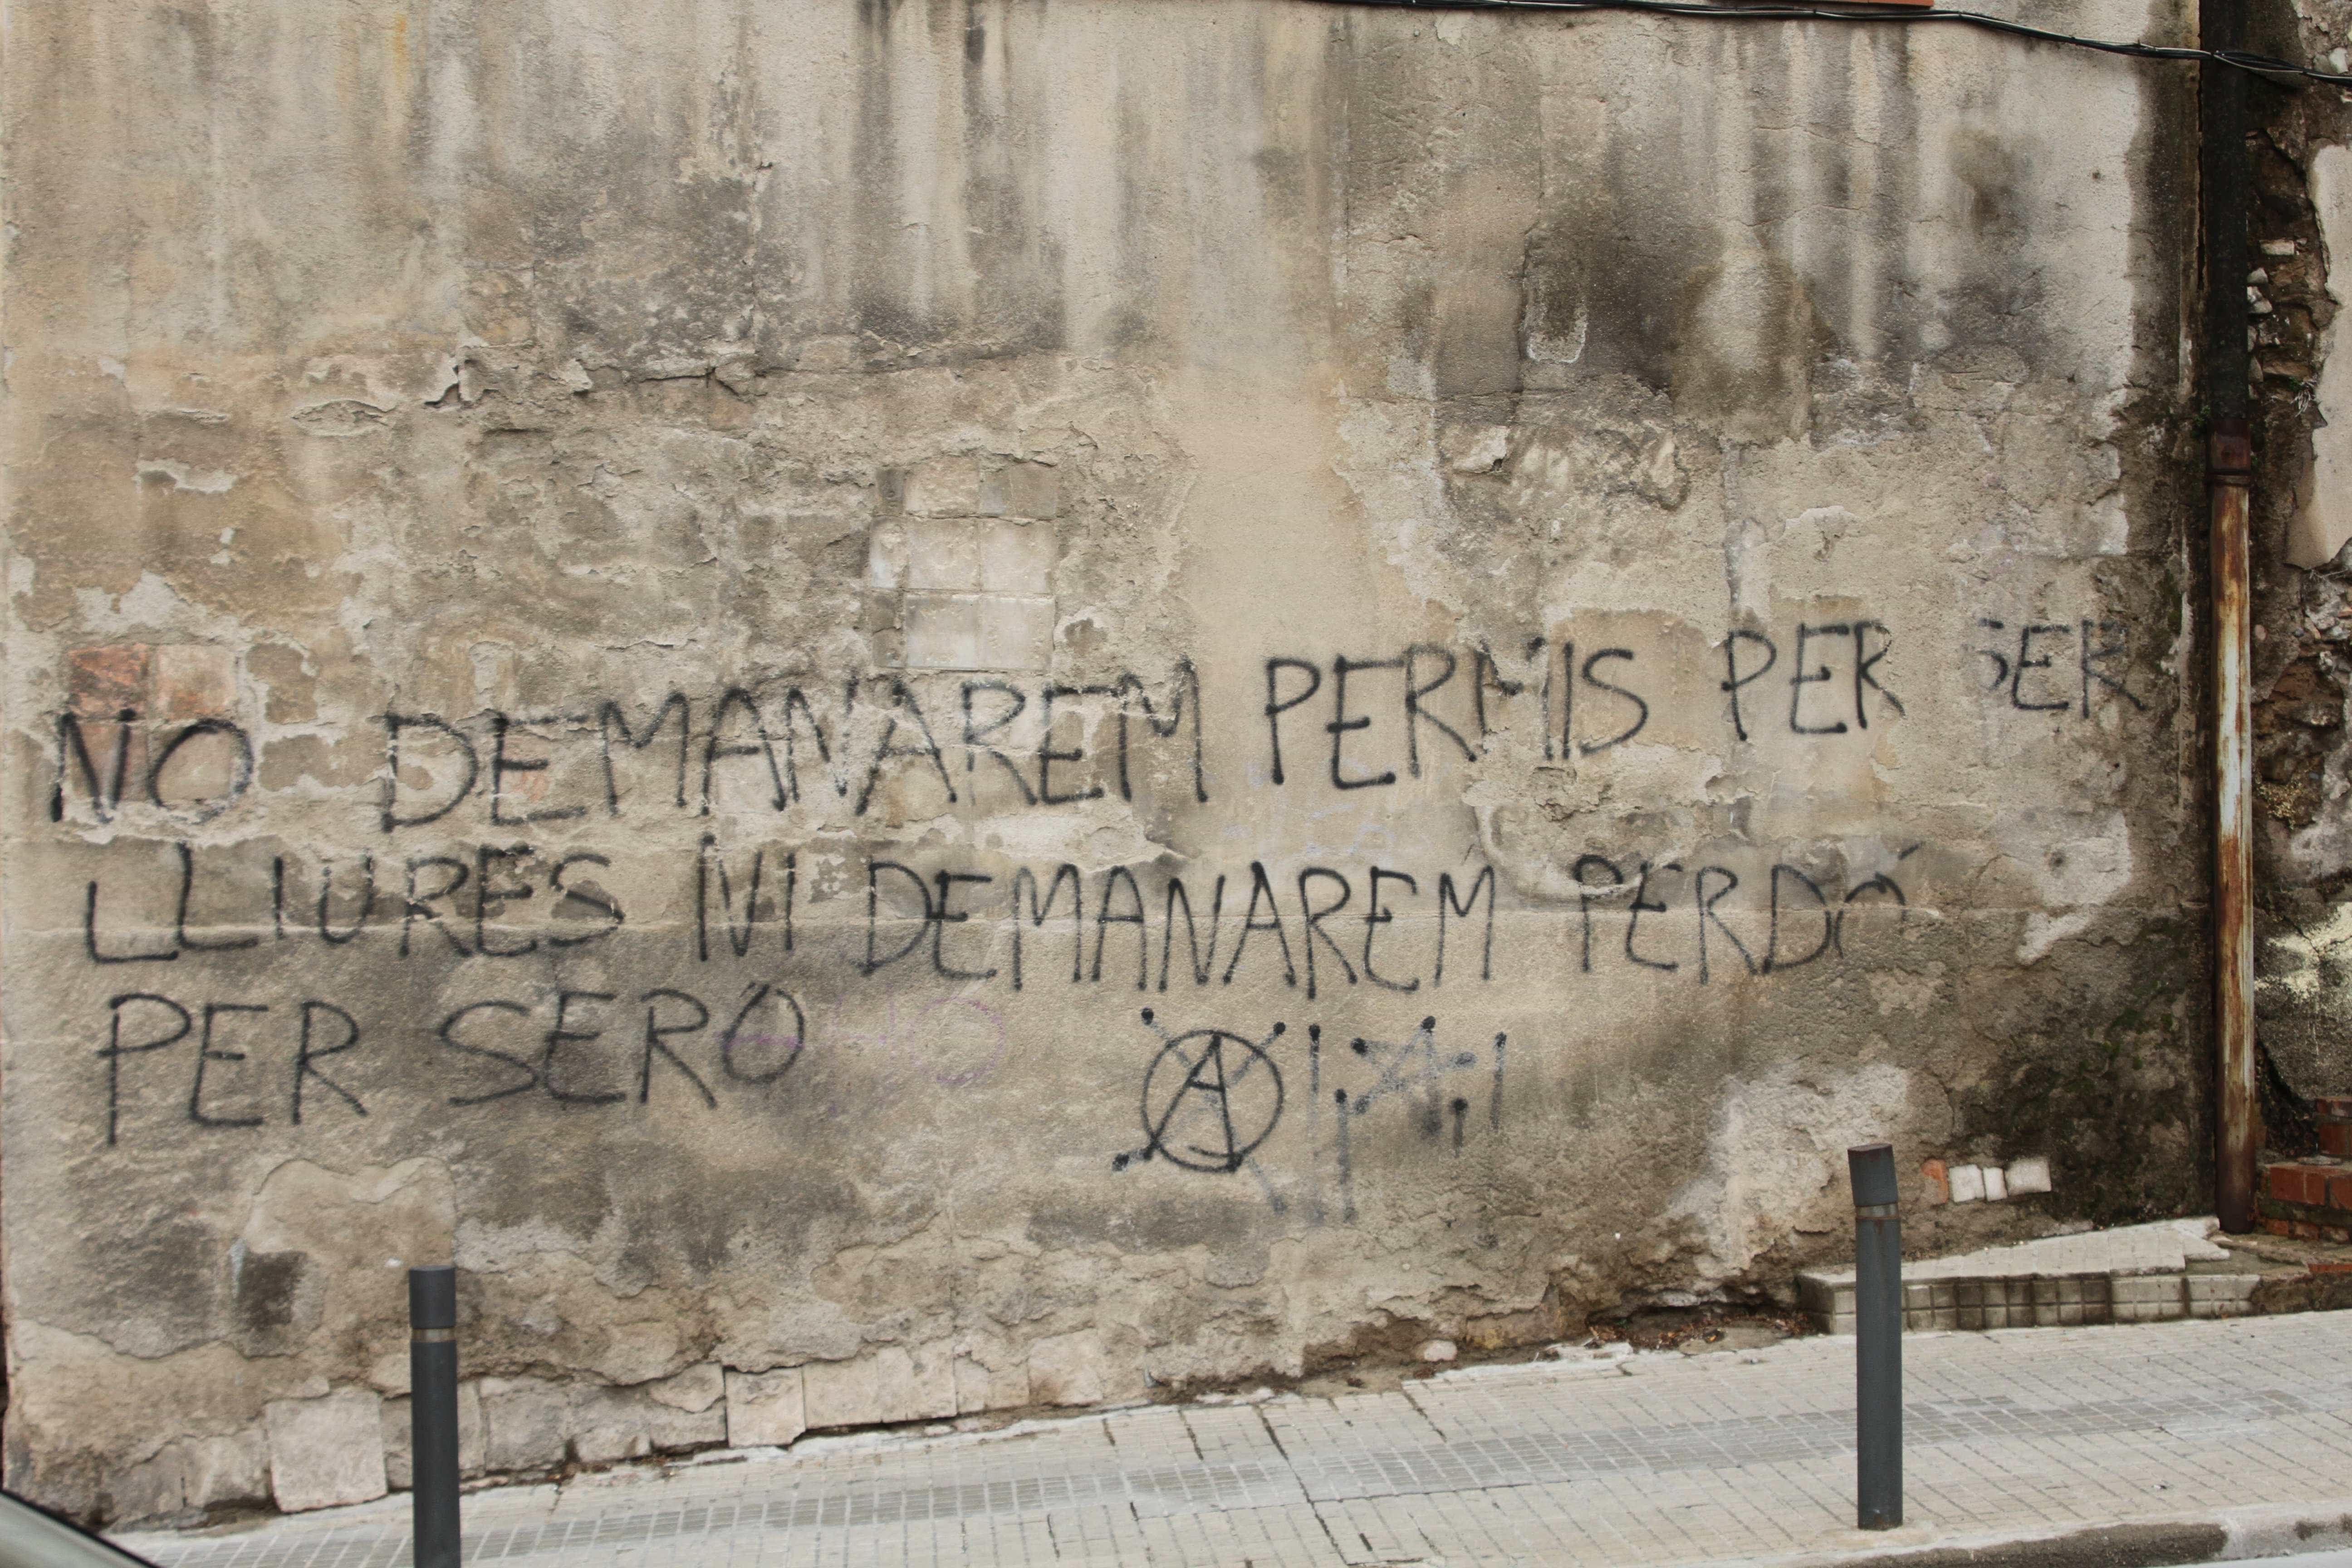 NO DEMANAREM PERMIS PER SER
LLIURES NI DEMANAREM PERDÓ
PER SERO